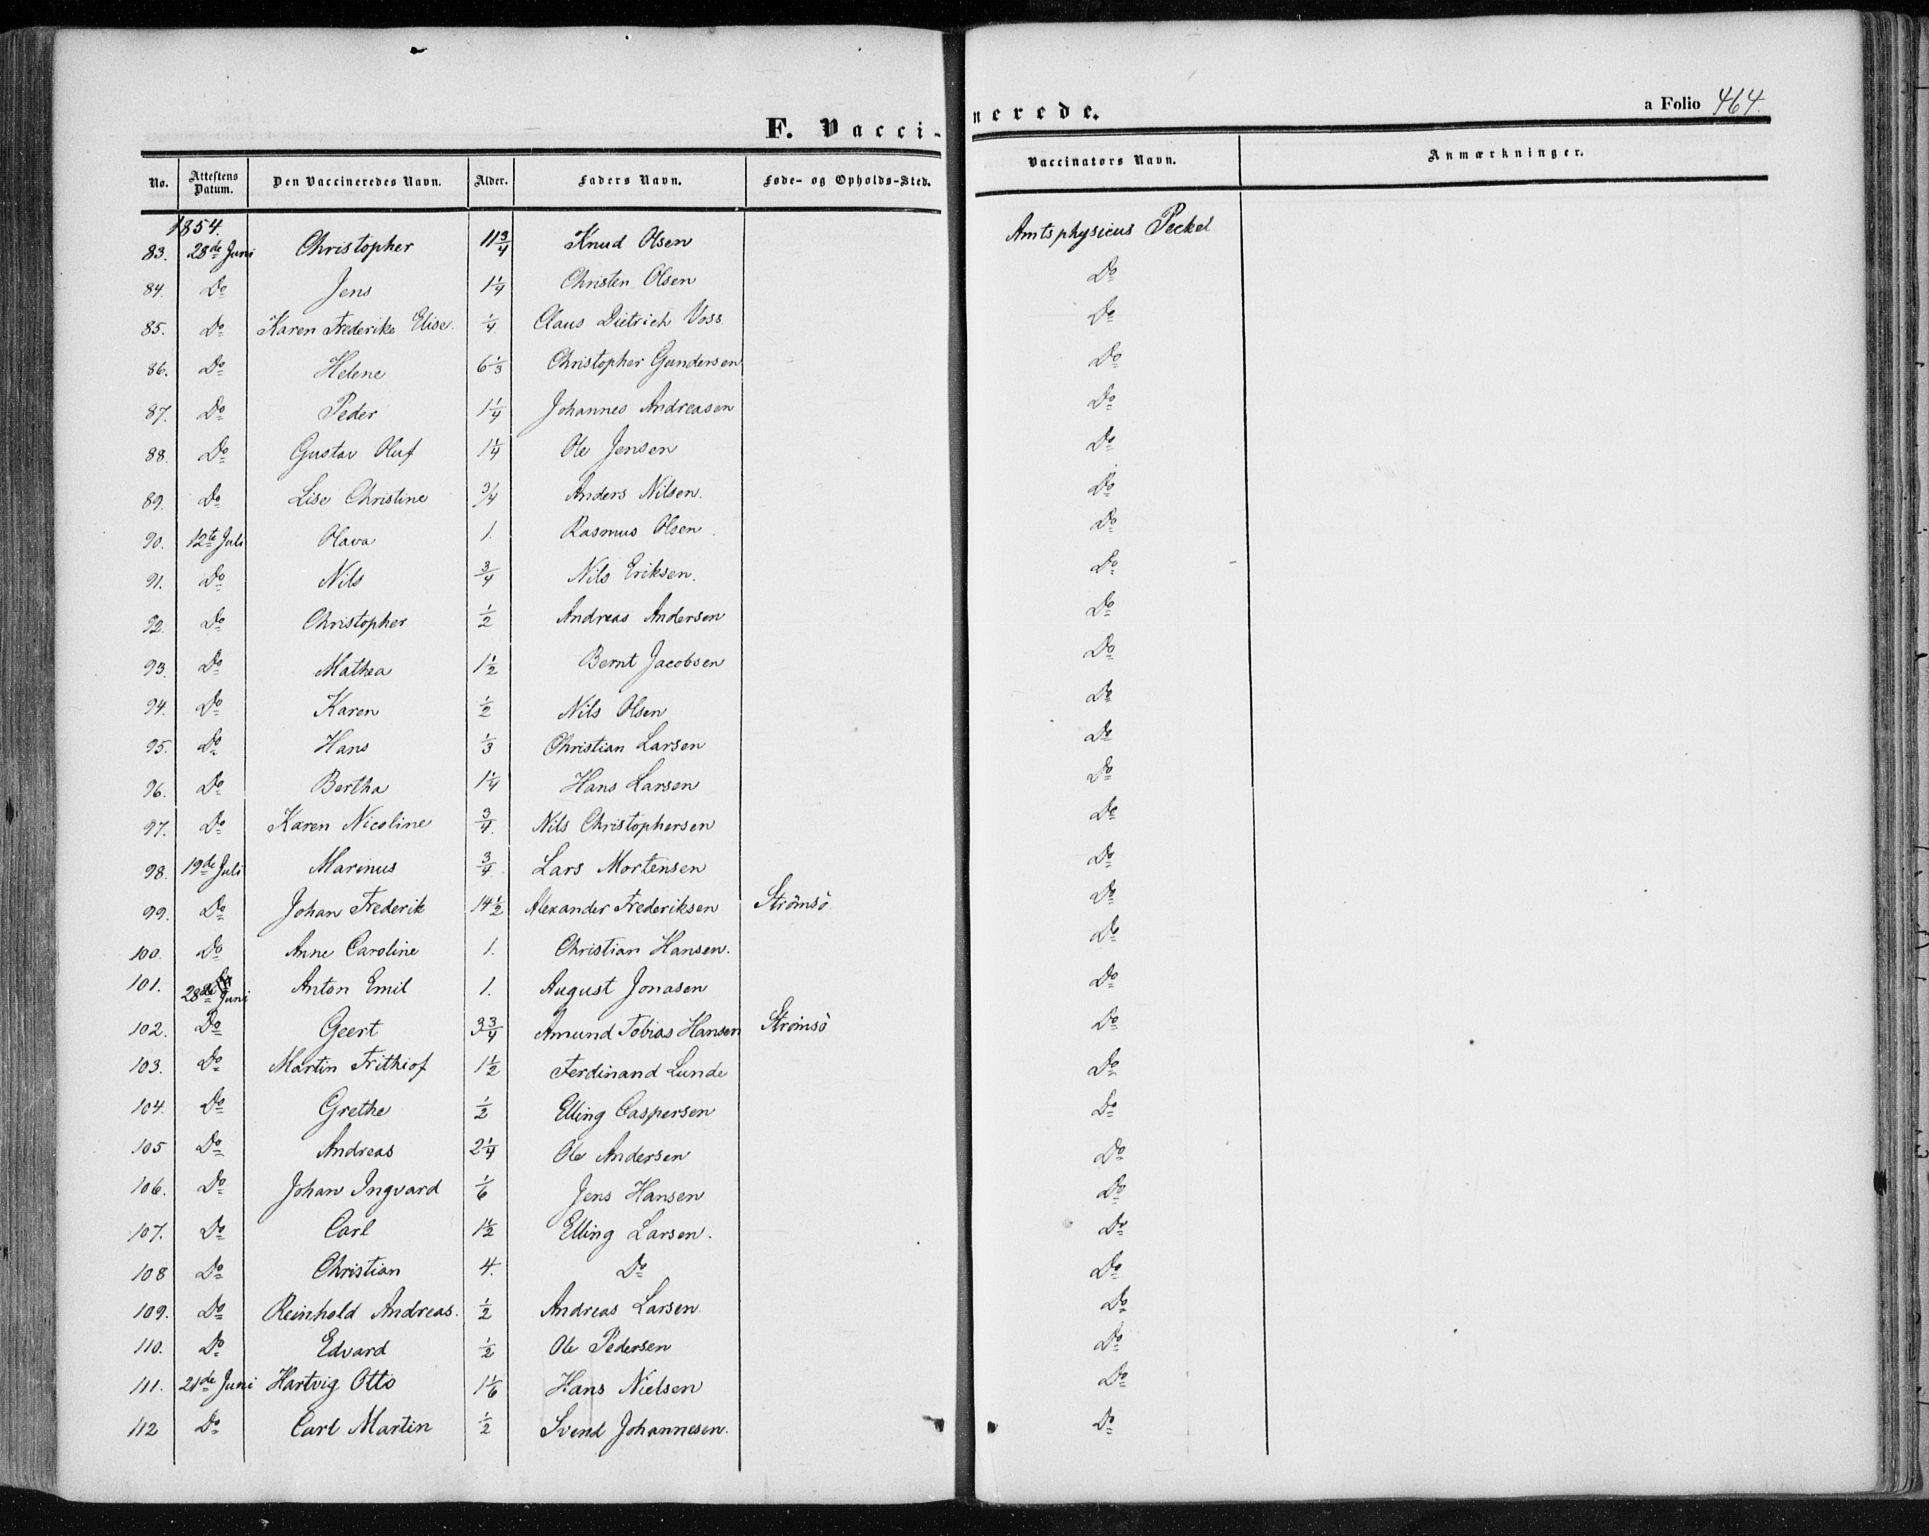 F. Vaccinerede.
a Folio 464.
No. Attestens Datum. Den Vaccineredes Navn. Alder. Faders Navn. Føde- og Opholds-Sted. Vaccinators Navn. Anmærkninger.
1854.
83. 28de Juni Christopher 11 3/4 Knud Olsen Amtsphysicus Peckel
84. Do Jens 1 1/4 Christen Olsen Do
85. Do Karen Frederike Elise. 1/4 Claus Dietrich Voss Do
86. Do Helene 6 1/3 Christopher Gundersen Do
87. Do Peder 1 1/4 Johannes Andreasen Do
88. Do Gustav Oluf 1 1/4 Ole Jensen Do
89. Do Lise Christine 3/4 Anders Nilsen. Do
90. 12te Juli Olava 1. Rasmus Olsen. Do
91. Do Nils 3/4 Nils Eriksen. Do
92. Do Christopher 1/2 Andreas Andersen Do
93. Do Mathea 1 1/2 Bernt Jacobsen Do
94. Do Karen 1/2 Nils Olsen Do
95. Do Hans 1/3 Christian Larsen Do
96. Do Bertha 1 1/4 Hans Larsen Do
97. Do Karen Nicoline 3/4. Nils Christophersen Do
98. 19de Juli Marinus 3/4. Lars Mortensen Do
99. Do Johan Frederik 14 1/2 Alexander Frederiksen Strömsö Do
100. Do Anne Caroline 1. Christian Hansen. Do
101. 28de Juni Anton Emil 1. August Jonasen Do
102. Do Geert 3 3/4 Amund Tobias Hansen Strömsö Do
103. Do Martin Frithiof 1 1/2 Ferdinand Lunde Do
104. Do Grethe 1/2 Elling Caspersen Do
105 Do Andreas 2 1/4 Ole Andersen Do
106. Do Johan Ingvard 1/6 Jens Hansen Do
107. Do Carl 1 1/2 Elling Larsen. Do
108 Do Christian 4. Do Do
109. Do Reinhold Andreas. 1/2 Andreas Larsen Do
110. Do Edvard 1/2 Ole Pedersen Do
111. 21de Juni Hartvig Otto 1 1/6 Hans Nielsen Do
112 Do Carl Martin 1/2 Svend Johannesen. Do